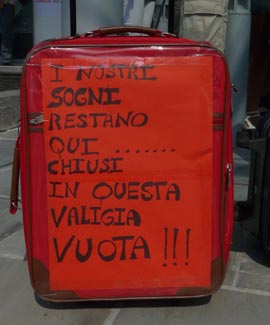 I NOSTRI
SOGNI
RESTANO
QUI .......
CHIUSI
IN QUESTA
VALIGIA
VUOTA !!!